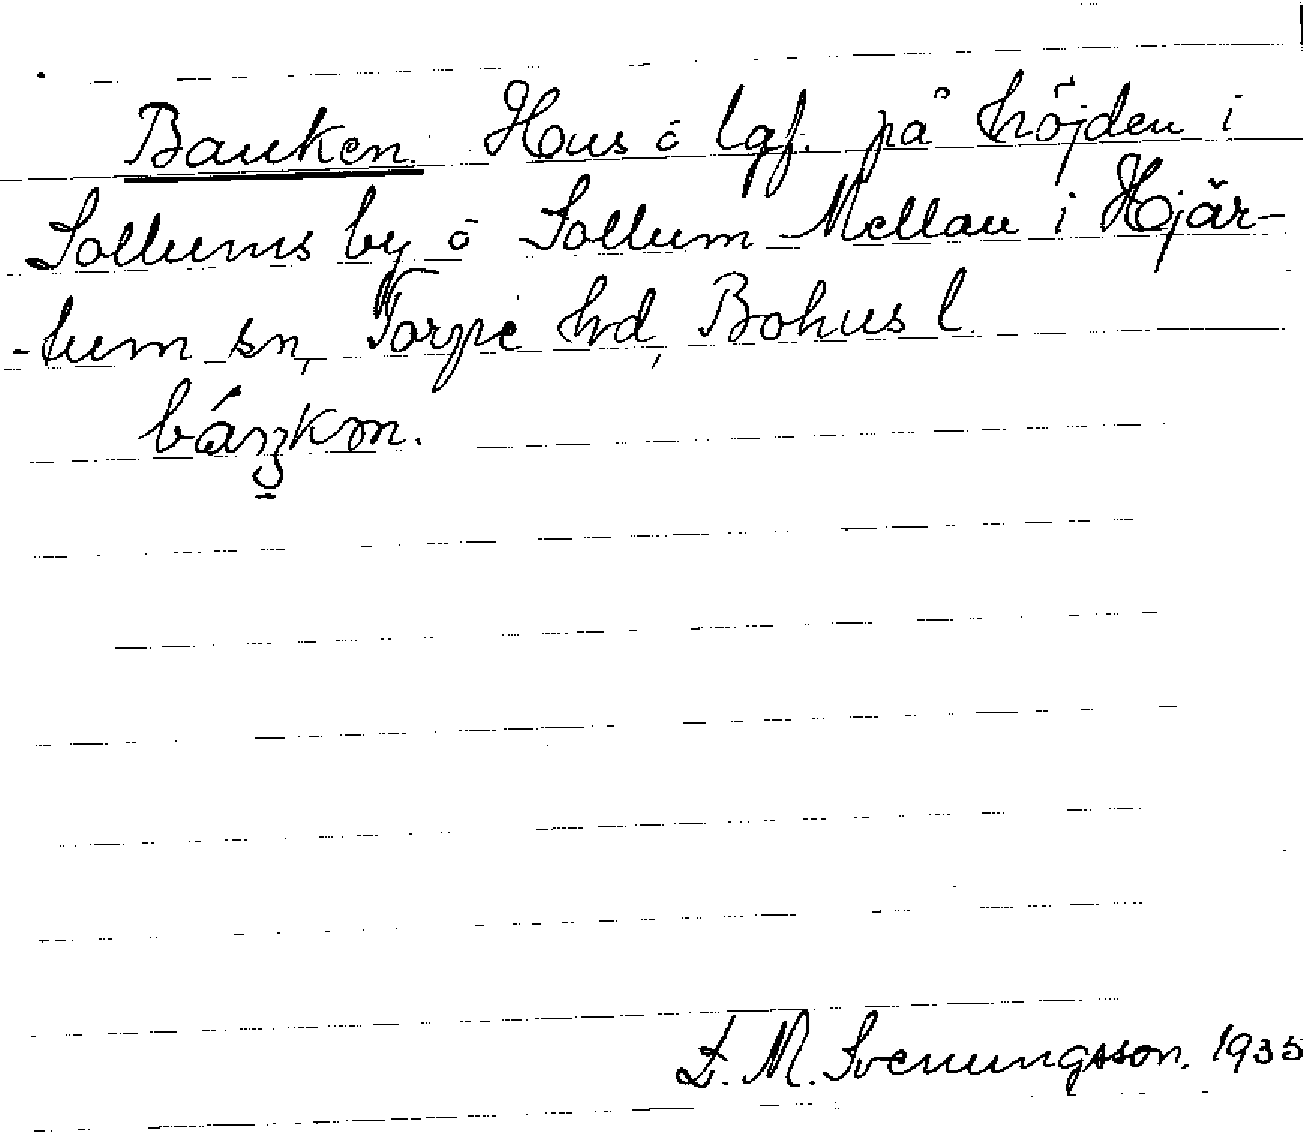 Banken. Hus å lgf. på höjden i
Sollums by å Sollum Mellan i Hjär-
-tum sn, Torpe hd, Bohus l.
L. M. Svenungsson. 1935